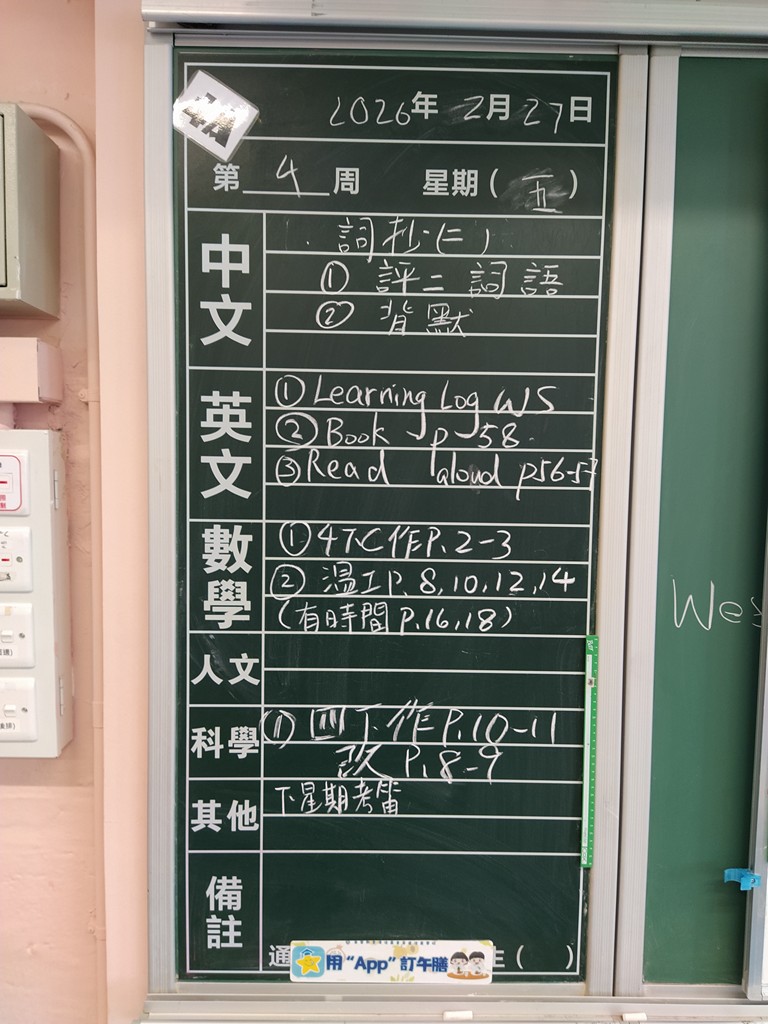 4A
2026年 2月27日
第 4 周 星期(五)
中文
詞抄(二)
① 評二 詞語
② 背默
英文
① Learning Log WS
② Book p 58.
③ Read aloud p56-57
數學
① 4下C作P.2-3
② 溫工P.8,10,12,14
(有時間P.16,18)
人文
科學
① 四下作P.10-11
改 P.8-9
其他
下星期考笛
備註
通
用“App”訂午膳
生( )
Wes